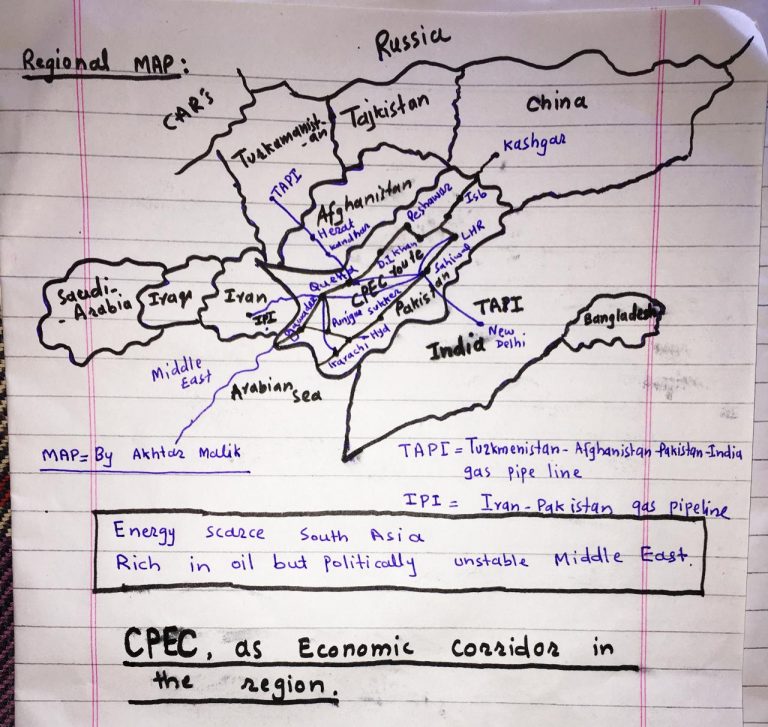 Russia
Regional MAP:
CAR's
Turkamanist-
-an
Tajkistan
China
Kashgar
TAPI
Afghanistan
Herat
kandhar
Peshawar
Isb
LHR
D.I khan
Sahiwal
Quetta
CPEC route
Pakistan
Saudi-
-Arabia
Iraq
Iran
IPI
Gawader
Punjgur
sukker
Hyd
Karachi
TAPI
New
Delhi
India
Bangladesh
Middle
East
Arabian
sea
MAP= By Akhtar Malik
TAPI = Turkmenistan-Afghanistan-Pakistan-India
gas pipe line
IPI = Iran-Pakistan gas pipeline
Energy scarce South Asia
Rich in oil but Politically unstable Middle East.
CPEC, as Economic corridor in
the region.